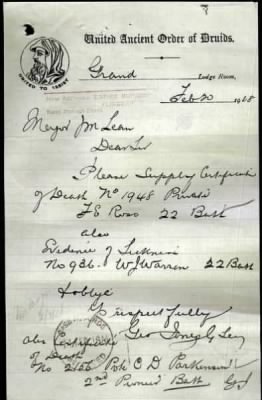 United Ancient Order of Druids.
UNITED TO ASSIST
Grand Lodge Room,
Feb 20 1918
Major J M Lean
Dear Sir
Please Supply Certificate
of Death No 1948 Private
F S Ross 22 Batt
also
Evidence of Sickness
No 986. W J Warren 22 Batt
& oblige
Yrs respectfully
Geo Jones G Sec
also Certificate
of Death
No 2156 Pte C D Parkinson
2nd Pioneer Batt